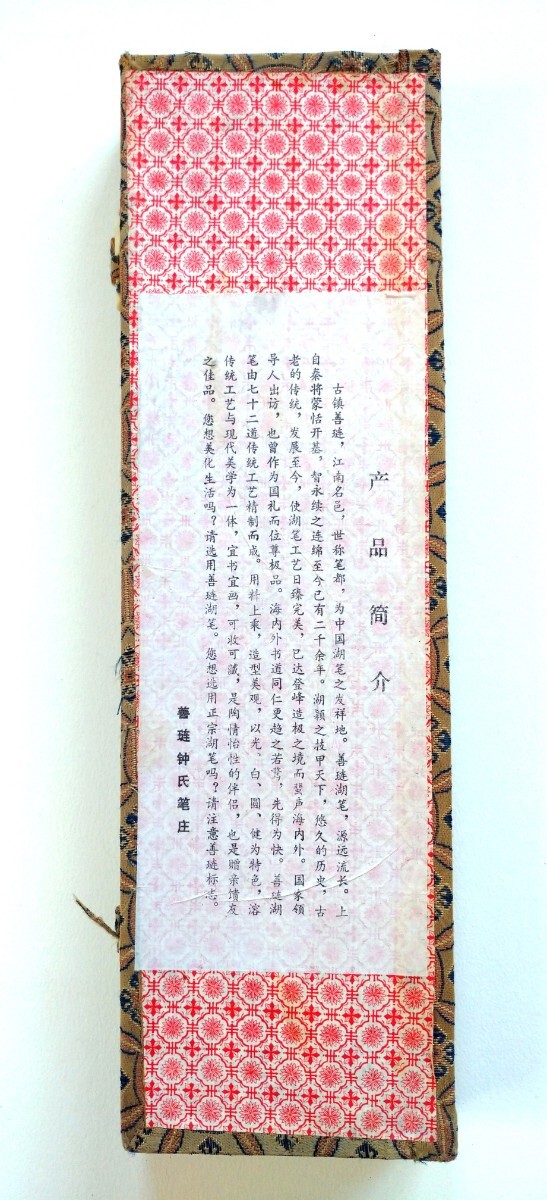 产品简介
古镇善琏，江南名邑，世称笔都，为中国湖笔之发祥地。善琏湖笔，源远流长。上
自秦将蒙恬开基，智永续之连绵至今已有二千余年。湖颖之技甲天下，悠久的历史，古
老的传统，发展至今，使湖笔工艺日臻完美，已达登峰造极之境而蜚声海内外。国家领
导人出访，也曾作为国礼而位尊极品。海内外书道同仁更趋之若鹜，先得为快。善琏湖
笔由七十二道传统工艺精制而成。用料上乘，造型美观，以光、白、圆、健为特色，溶
传统工艺与现代美学为一体，宜书宜画，可收可藏，是陶情怡性的伴侣，也是赠亲馈友
之佳品。您想美化生活吗？请选用善琏湖笔。您想选用正宗湖笔吗？请注意善琏标志。
善琏钟氏笔庄